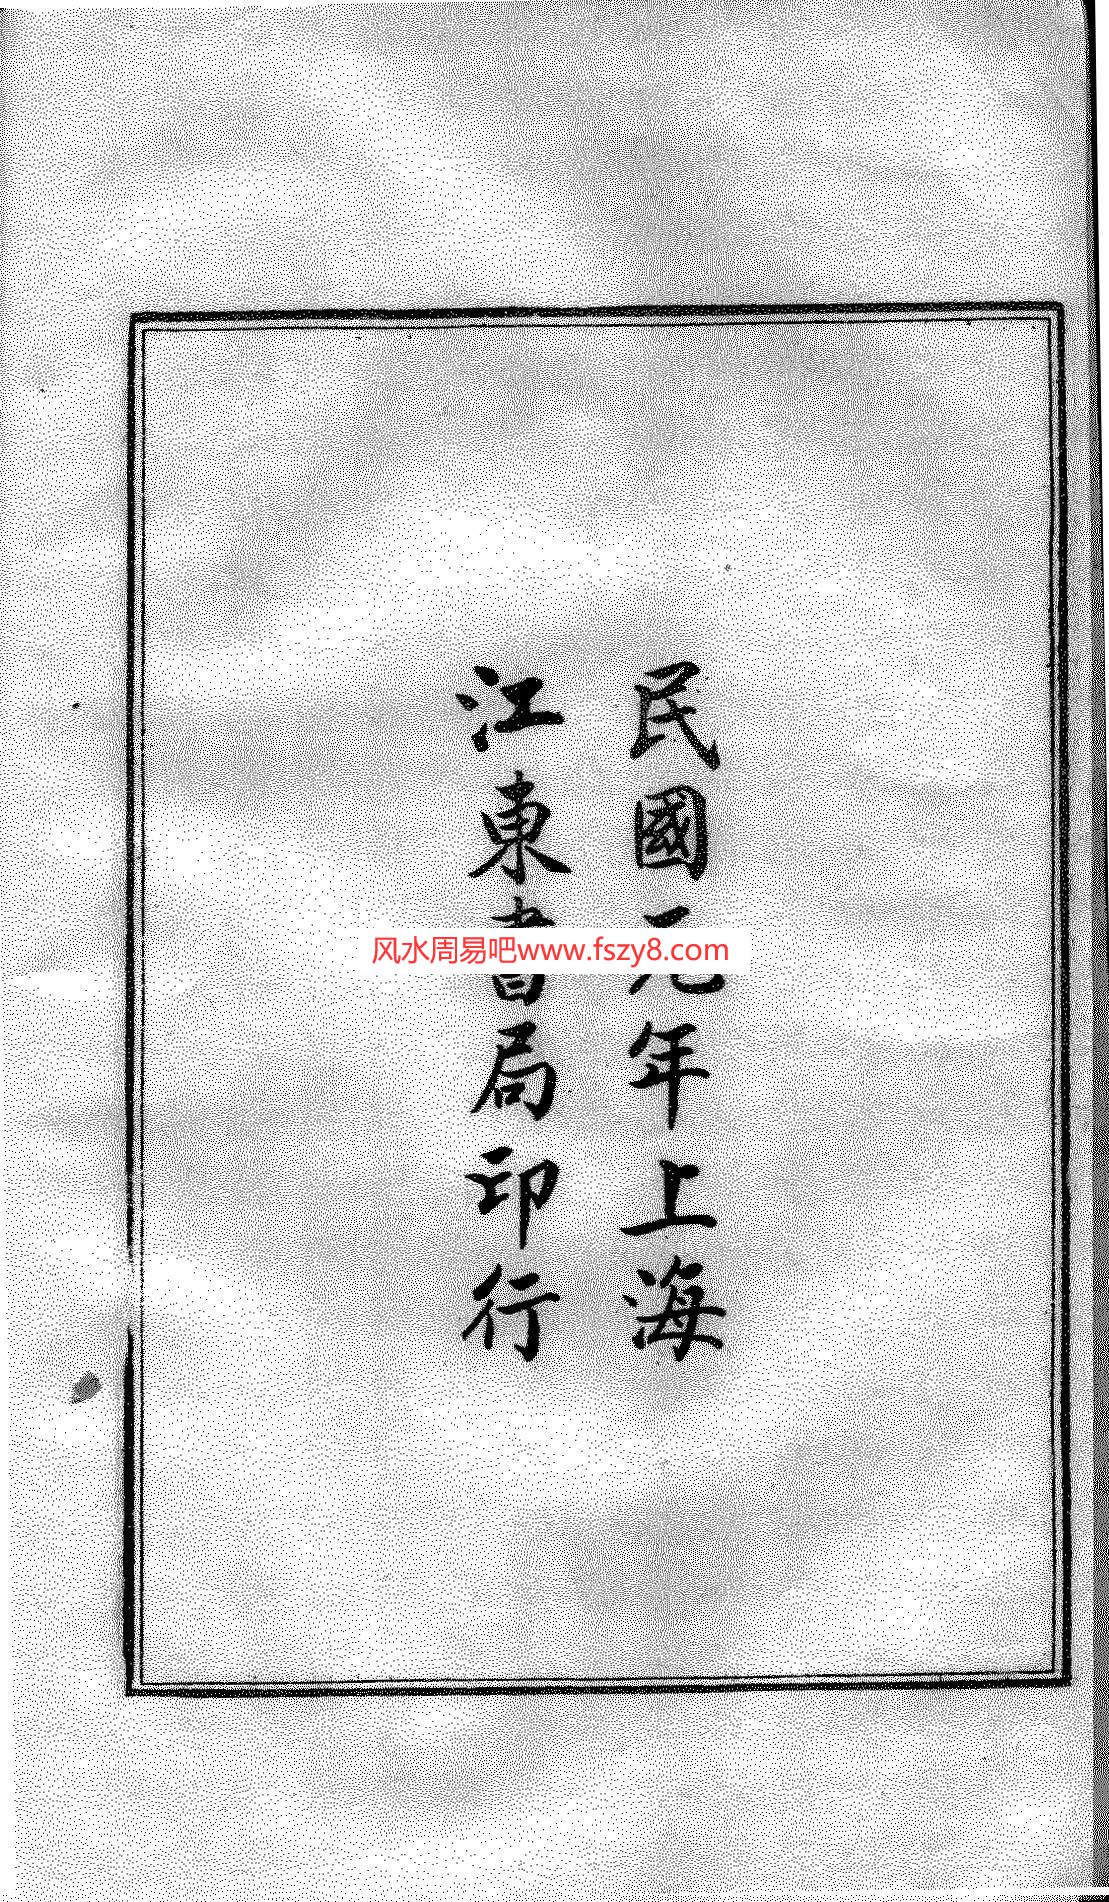 民國元年上海
江東書局印行
风水周易吧www.fszy8.com